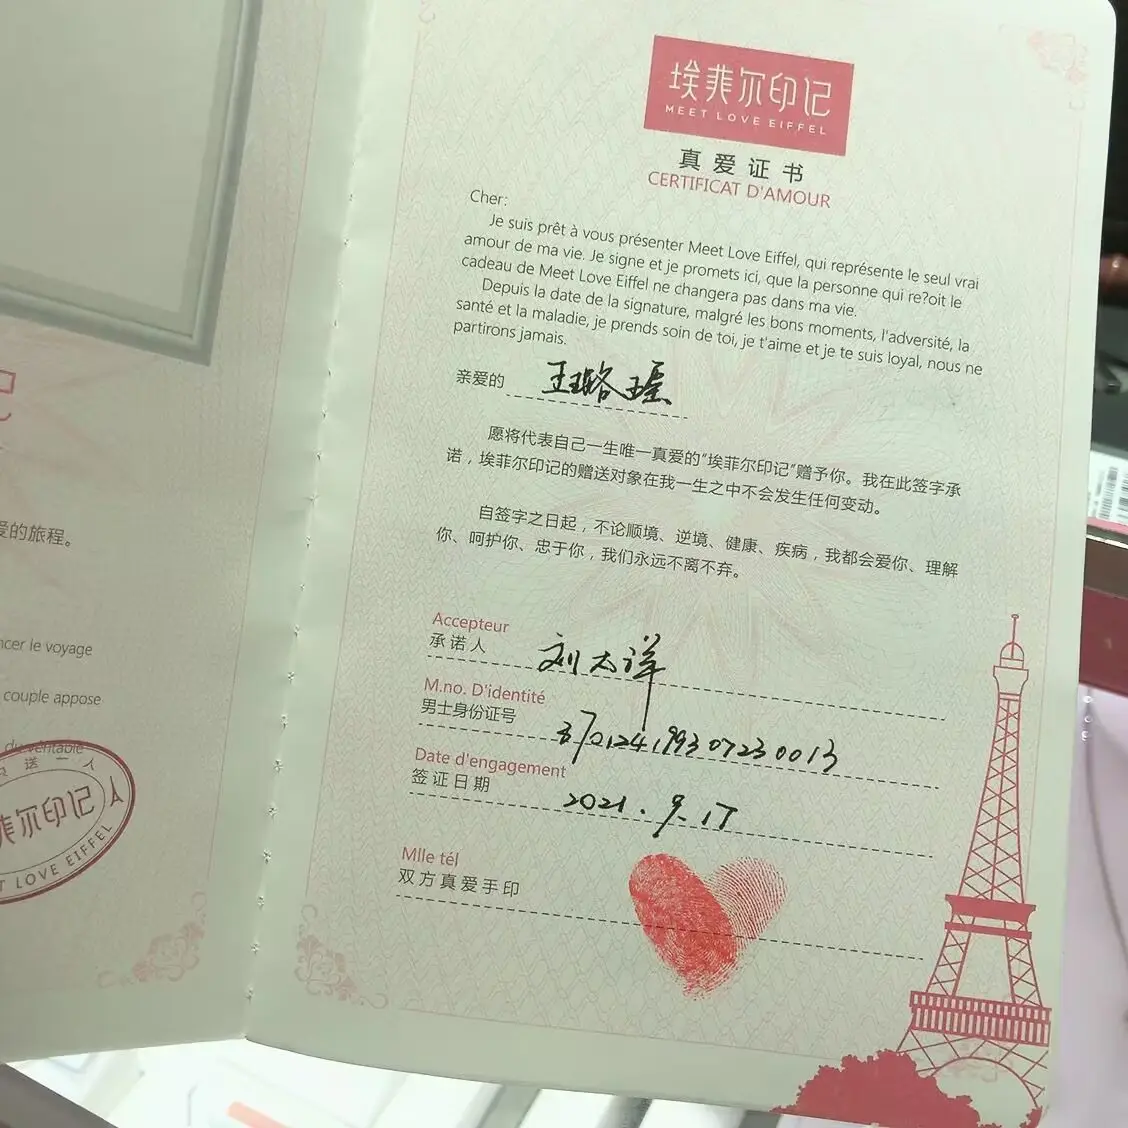 埃菲尔印记
MEET LOVE EIFFEL
真爱证书
CERTIFICAT D'AMOUR
Cher:
Je suis prêt à vous présenter Meet Love Eiffel, qui représente le seul vrai
amour de ma vie. Je signe et je promets ici, que la personne qui re?oit le
cadeau de Meet Love Eiffel ne changera pas dans ma vie.
Depuis la date de la signature, malgré les bons moments, l'adversité, la
santé et la maladie, je prends soin de toi, je t'aime et je te suis loyal, nous ne
partirons jamais.
亲爱的 王璐瑶
愿将代表自己一生唯一真爱的"埃菲尔印记"赠予你。我在此签字承
诺，埃菲尔印记的赠送对象在我一生之中不会发生任何变动。
自签字之日起，不论顺境、逆境、健康、疾病，我都会爱你、理解
你、呵护你、忠于你，我们永远不离不弃。
Accepteur
承诺人 刘大洋
M.no. D'identité
男士身份证号 370124199307230013
Date d'engagement
签证日期 2021.9.17
Mlle tél
双方真爱手印
爱的旅程。
ncer le voyage
couple appose
du véritable
送一人
菲尔印记
T LOVE EIFFEL